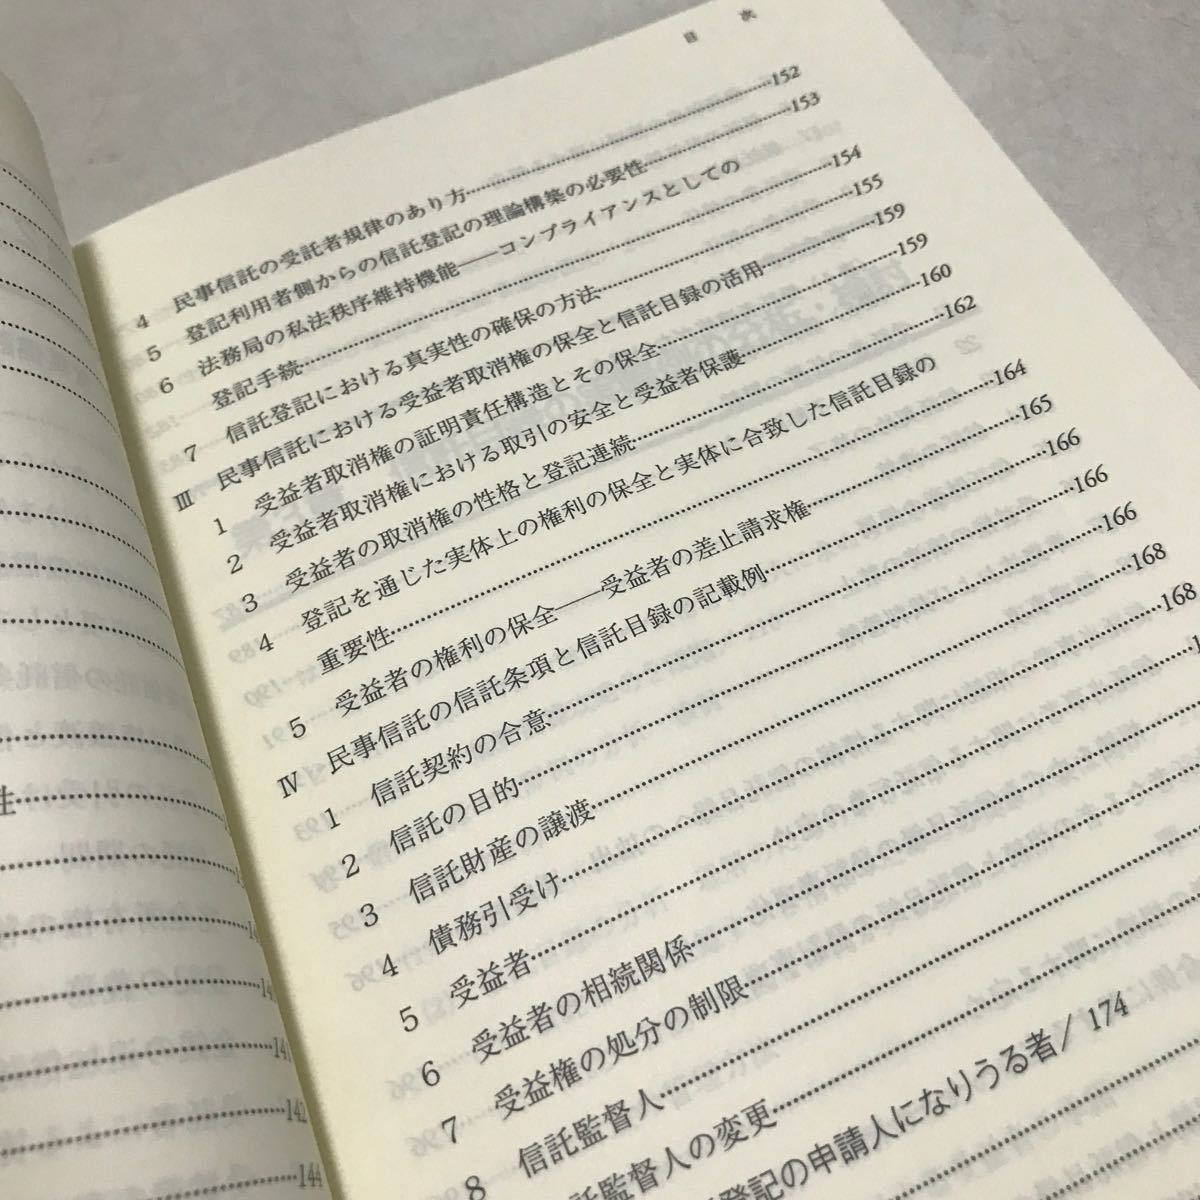 目　次
4　民事信託の受託者規律のあり方……152
5　登記利用者側からの信託登記の理論構築の必要性……153
6　法務局の私法秩序維持機能――コンプライアンスとしての
登記手続……154
7　信託登記における真実性の確保の方法……155
Ⅲ　民事信託における受益者取消権の保全と信託目録の活用……159
1　受益者取消権の証明責任構造とその保全……159
2　受益者取消権における取引の安全と受益者保護……160
3　受益者の取消権の性格と登記連続……162
4　登記を通じた実体上の権利の保全と実体に合致した信託目録の
重要性……164
5　受益者の権利の保全――受益者の差止請求権……165
Ⅳ　民事信託の信託条項と信託目録の記載例……166
1　信託契約の合意……166
2　信託の目的……166
3　信託財産の譲渡……168
4　債務引受け……168
5　受益者……
6　受益者の相続関係……
7　受益権の処分の制限……
8　信託監督人……
託監督人の変更……
登記の申請人になりうる者/ 174
性……
……142
……144